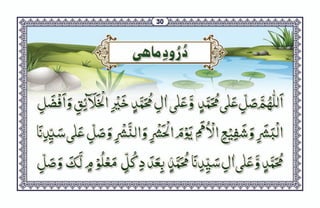 30
دُرُودِ ماهی
اَللّٰهُمَّ صَلِّ عَلٰى مُحَمَّدٍ وَّعَلٰى اٰلِ مُحَمَّدٍ خَيْرِ الْخَلَآئِقِ وَ اَفْضَلِ
الْبَشَرِ وَشَفِيْعِ الْاُمَمِ يَوْمَ الْحَشْرِ وَالنَّشْرِ وَصَلِّ عَلٰى سَيِّدِنَا
مُحَمَّدٍ وَّعَلٰى اٰلِ سَيِّدِنَا مُحَمَّدٍۢ بِعَدَدِ كُلِّ مَعْلُوْمٍ لَّكَ وَصَلِّ